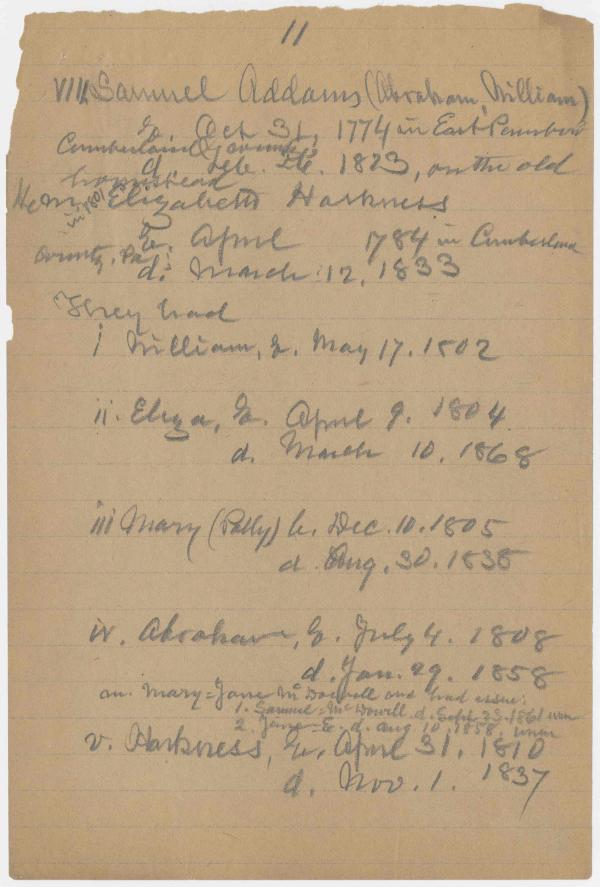 11
VIII. Samuel Addams (Abraham, William)
b. Oct 31, 1774 in East Pennsboro
Cumberland County
d. Feb. 26. 1823, on the old
homestead
He m. Elizabeth Harkness
in 1801
b. April 1784 in Cumberland
County, Pa.
d. March 12, 1833
They had
i William, b. May 17. 1802
ii. Eliza, b. April 9. 1804.
d. March 10. 1868
iii Mary (Polly) b. Dec. 10. 1805
d. Aug. 30. 1838
iv. Abraham, b. July 4. 1808
d. Jan. 29. 1858
m. Mary=Jane McDowell and had issue:
1. Samuel=McDowell. d. Sept. 23. 1861 unm
2. Jane=E. d. Aug 10, 1858, unm
v. Harkness, b. April 31, 1810
d. Nov. 1. 1837